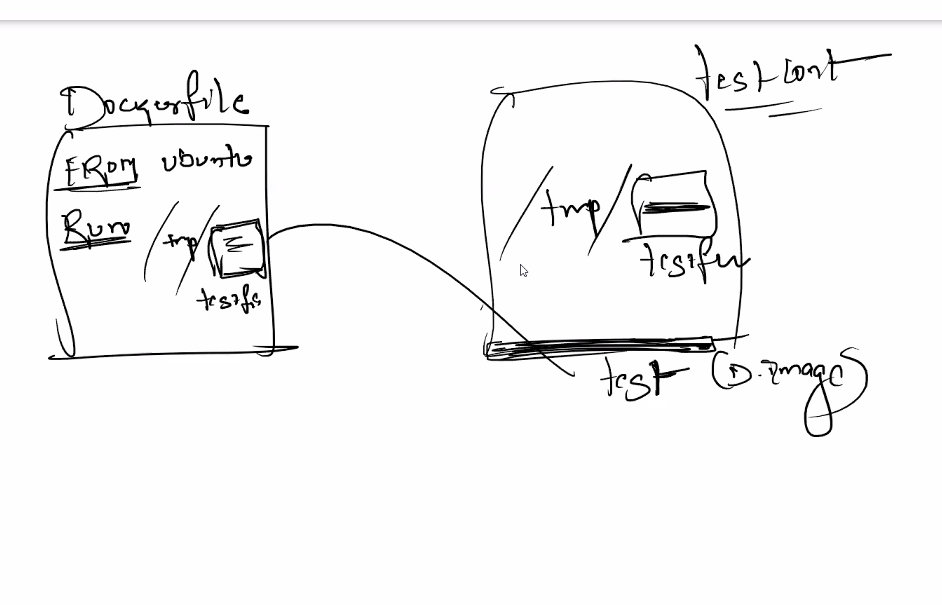 Dockerfile
FROM ubuntu
Run /tmp/
testfi
testcont
/tmp/
testfi
test (D.image)